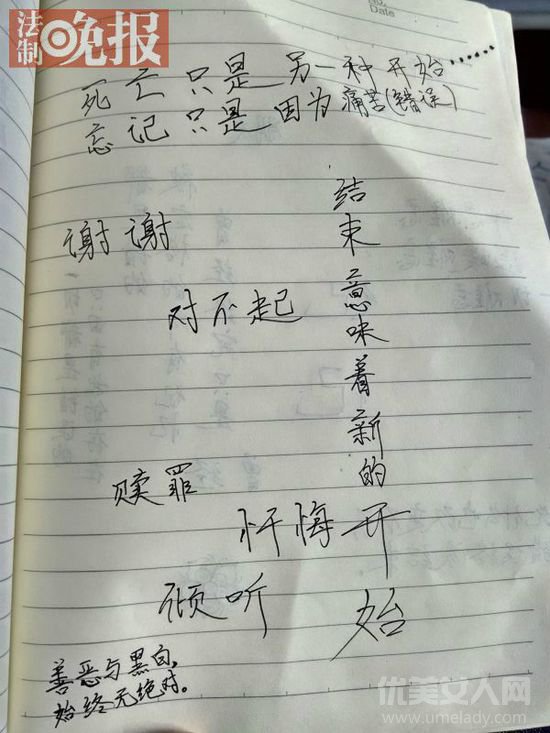 法制晚报
Date
死亡只是另一种开始……
忘记只是因为痛苦(错误)
结束意味着新的开始
谢谢
对不起
赎罪
忏悔
倾听
善恶与黑白,
始终无绝对。
优美女人网
www.umelady.com